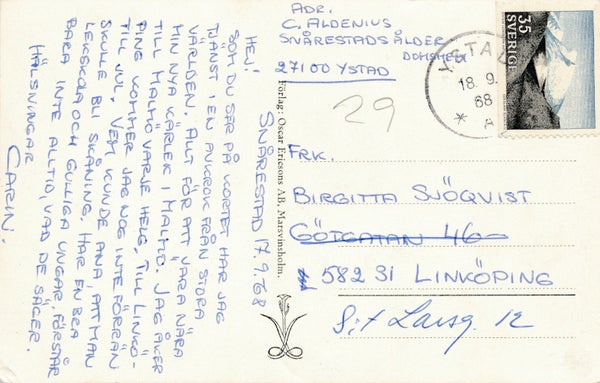 ADR.
C. ALDENIUS
SNÅRESTADS ÅLDER
DOMSHEM
27100 YSTAD
YSTAD
18.9.
68
* A
35
SVERIGE
29
SNÅRESTAD 17.9.68
HEJ!
SOM DU SER PÅ KORTET HAR JAG
TJÄNST I EN AVKROK FRÅN STORA
VÄRLDEN. ALLT FÖR ATT VARA NÄRA
MIN NYA KÄRLEK I MALMÖ. JAG ÅKER
TILL MALMÖ VARJE HELG, TILL LINKÖ-
PING KOMMER JAG NOG INTE FÖRRÄN
TILL JUL. VEM KUNDE ANA, ATT MAN
SKULLE BLI SKÅNING. HAR EN BRA
LEKSKOLA OCH GULLIGA UNGAR, FÖRSTÅR
BARA INTE ALLTID, VAD DE SÄGER.
HÄLSNINGAR
CARIN.
Förlag: Oscar Ericsons A.B. Marsvinsholm.
FRK.
BIRGITTA SJÖQVIST
GÖTGATAN 46
582 31 LINKÖPING
S:t Larsg. 12